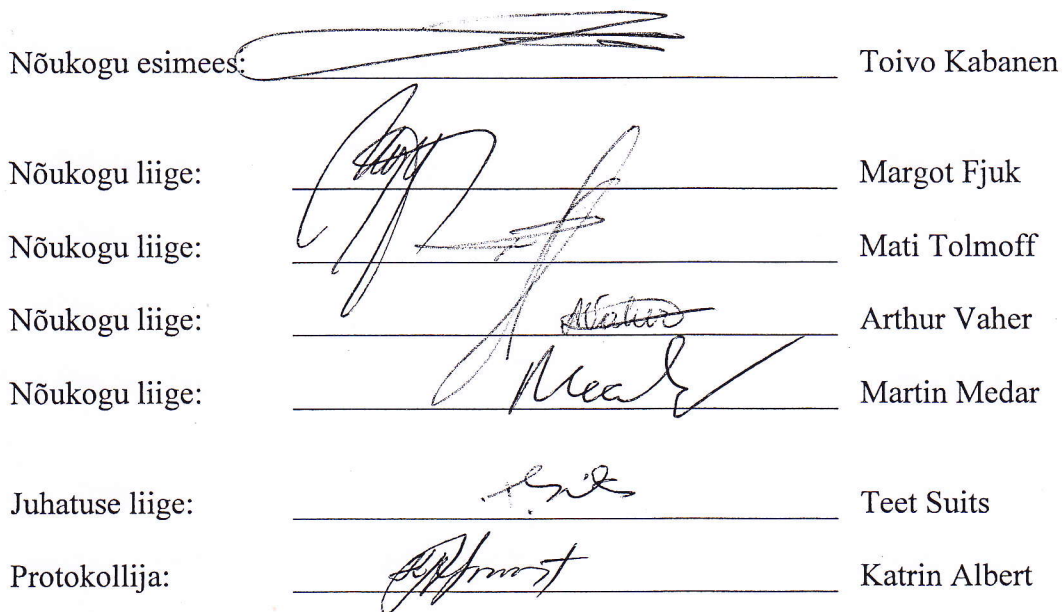 Nõukogu esimees: Toivo Kabanen
Nõukogu liige: Margot Fjuk
Nõukogu liige: Mati Tolmoff
Nõukogu liige: Arthur Vaher
Nõukogu liige: Martin Medar
Juhatuse liige: Teet Suits
Protokollija: Katrin Albert